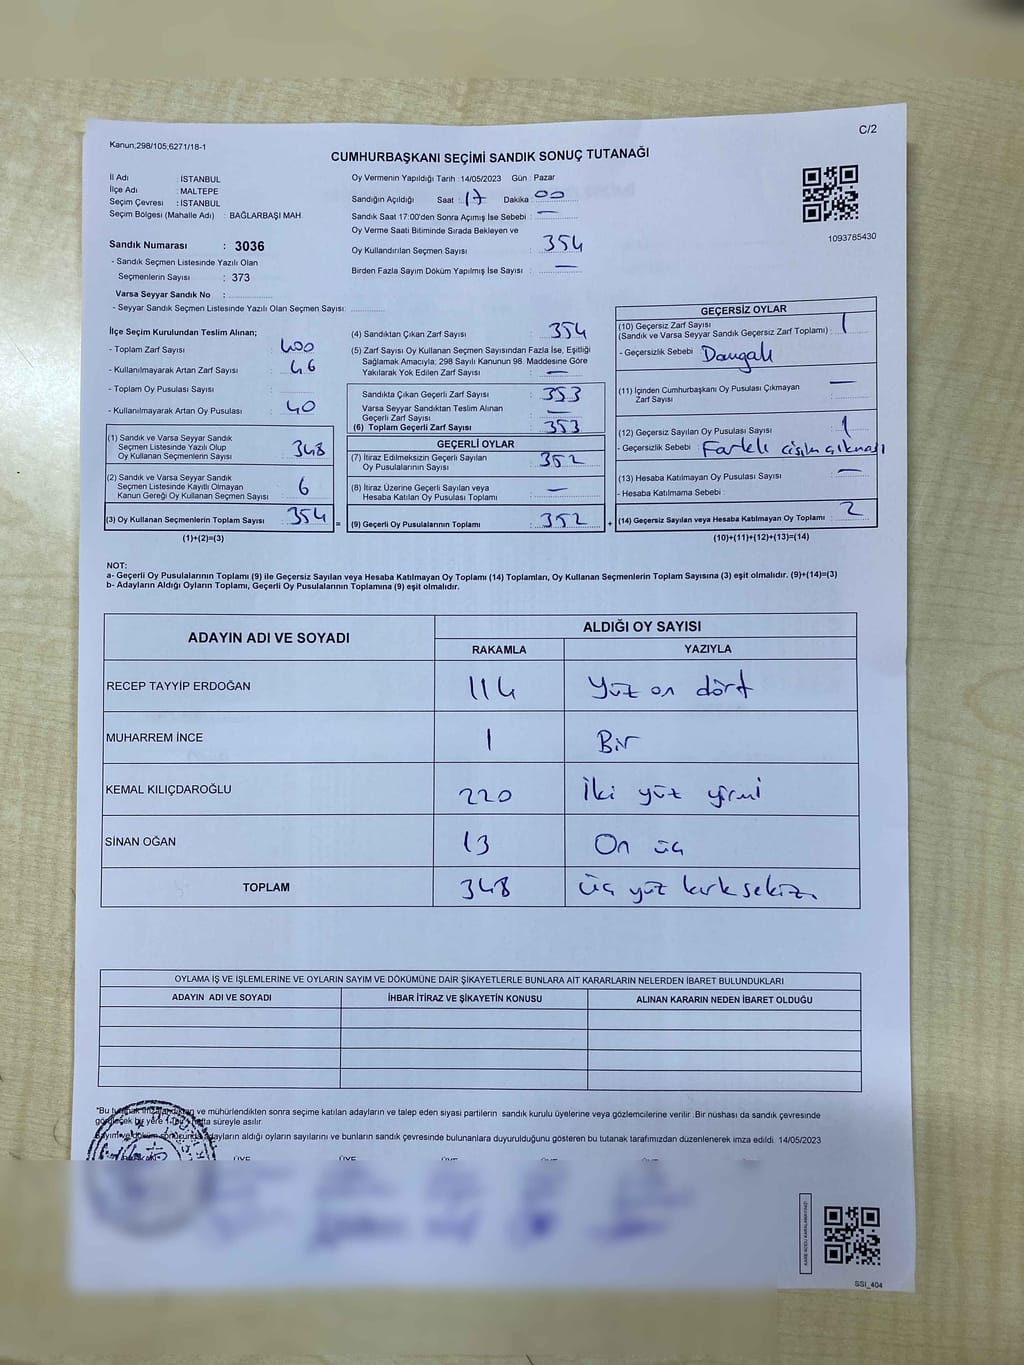 C/2
Kanun;298/105;6271/18-1
CUMHURBAŞKANI SEÇİMİ SANDIK SONUÇ TUTANAĞI
İl Adı : İSTANBUL
İlçe Adı : MALTEPE
Seçim Çevresi : İSTANBUL
Seçim Bölgesi (Mahalle Adı) : BAĞLARBAŞI MAH.
Sandık Numarası : 3036
- Sandık Seçmen Listesinde Yazılı Olan
Seçmenlerin Sayısı : 373
Varsa Seyyar Sandık No :
- Seyyar Sandık Seçmen Listesinde Yazılı Olan Seçmen Sayısı:
Oy Vermenin Yapıldığı Tarih : 14/05/2023 Gün : Pazar
Sandığın Açıldığı Saat : 17 Dakika : 00
Sandık Saat 17:00'den Sonra Açımış İse Sebebi : —
Oy Verme Saati Bitiminde Sırada Bekleyen ve
Oy Kullandırılan Seçmen Sayısı : 354
Birden Fazla Sayım Döküm Yapılmış İse Sayısı : —
1093785430
İlçe Seçim Kurulundan Teslim Alınan;
- Toplam Zarf Sayısı : 400
- Kullanılmayarak Artan Zarf Sayısı : 46
- Toplam Oy Pusulası Sayısı :
- Kullanılmayarak Artan Oy Pusulası : 40
(1) Sandık ve Varsa Seyyar Sandık
Seçmen Listesinde Yazılı Olup
Oy Kullanan Seçmenlerin Sayısı : 348
(2) Sandık ve Varsa Seyyar Sandık
Seçmen Listesinde Kayıtlı Olmayan
Kanun Gereği Oy Kullanan Seçmen Sayısı : 6
(3) Oy Kullanan Seçmenlerin Toplam Sayısı : 354 =
(1)+(2)=(3)
(4) Sandıktan Çıkan Zarf Sayısı : 354
(5) Zarf Sayısı Oy Kullanan Seçmen Sayısından Fazla İse, Eşitliği
Sağlamak Amacıyla; 298 Sayılı Kanunun 98. Maddesine Göre
Yakılarak Yok Edilen Zarf Sayısı : —
Sandıkta Çıkan Geçerli Zarf Sayısı : 353
Varsa Seyyar Sandıktan Teslim Alınan
Geçerli Zarf Sayısı : —
(6) Toplam Geçerli Zarf Sayısı : 353
GEÇERLİ OYLAR
(7) İtiraz Edilmeksizin Geçerli Sayılan
Oy Pusulalarının Sayısı : 352
(8) İtiraz Üzerine Geçerli Sayılan veya
Hesaba Katılan Oy Pusulası Toplamı : —
(9) Geçerli Oy Pusulalarının Toplamı : 352 +
GEÇERSİZ OYLAR
(10) Geçersiz Zarf Sayısı
(Sandık ve Varsa Seyyar Sandık Geçersiz Zarf Toplamı) : 1
- Geçersizlik Sebebi : Damgalı
(11) İçinden Cumhurbaşkanı Oy Pusulası Çıkmayan
Zarf Sayısı : —
(12) Geçersiz Sayılan Oy Pusulası Sayısı : 1
- Geçersizlik Sebebi : Farklı cisim çıkması
(13) Hesaba Katılmayan Oy Pusulası Sayısı : —
- Hesaba Katılmama Sebebi :
(14) Geçersiz Sayılan veya Hesaba Katılmayan Oy Toplamı : 2
(10)+(11)+(12)+(13)=(14)
NOT:
a- Geçerli Oy Pusulalarının Toplamı (9) ile Geçersiz Sayılan veya Hesaba Katılmayan Oy Toplamı (14) Toplamları, Oy Kullanan Seçmenlerin Toplam Sayısına (3) eşit olmalıdır. (9)+(14)=(3)
b- Adayların Aldığı Oyların Toplamı, Geçerli Oy Pusulalarının Toplamına (9) eşit olmalıdır.
ADAYIN ADI VE SOYADI ALDIĞI OY SAYISI
RAKAMLA YAZIYLA
RECEP TAYYİP ERDOĞAN 114 Yüz on dört
MUHARREM İNCE 1 Bir
KEMAL KILIÇDAROĞLU 220 İki yüz yirmi
SİNAN OĞAN 13 On üç
TOPLAM 348 üç yüz kırk sekiz
OYLAMA İŞ VE İŞLEMLERİNE VE OYLARIN SAYIM VE DÖKÜMÜNE DAİR ŞİKAYETLERLE BUNLARA AİT KARARLARIN NELERDEN İBARET BULUNDUKLARI
ADAYIN ADI VE SOYADI İHBAR İTİRAZ VE ŞİKAYETİN KONUSU ALINAN KARARIN NEDEN İBARET OLDUĞU
"Bu tutanak imzalandıktan ve mühürlendikten sonra seçime katılan adayların ve talep eden siyasi partilerin sandık kurulu üyelerine veya gözlemcilerine verilir. Bir nüshası da sandık çevresinde
görülecek bir yere 1 hafta süreyle asılır.
Sayım ve döküm sonucunda adayların aldığı oyların sayılarını ve bunların sandık çevresinde bulunanlara duyurulduğunu gösteren bu tutanak tarafımızdan düzenlenerek imza edildi. 14/05/2023
ÜYE ÜYE ÜYE ÜYE ÜYE
SSI_404